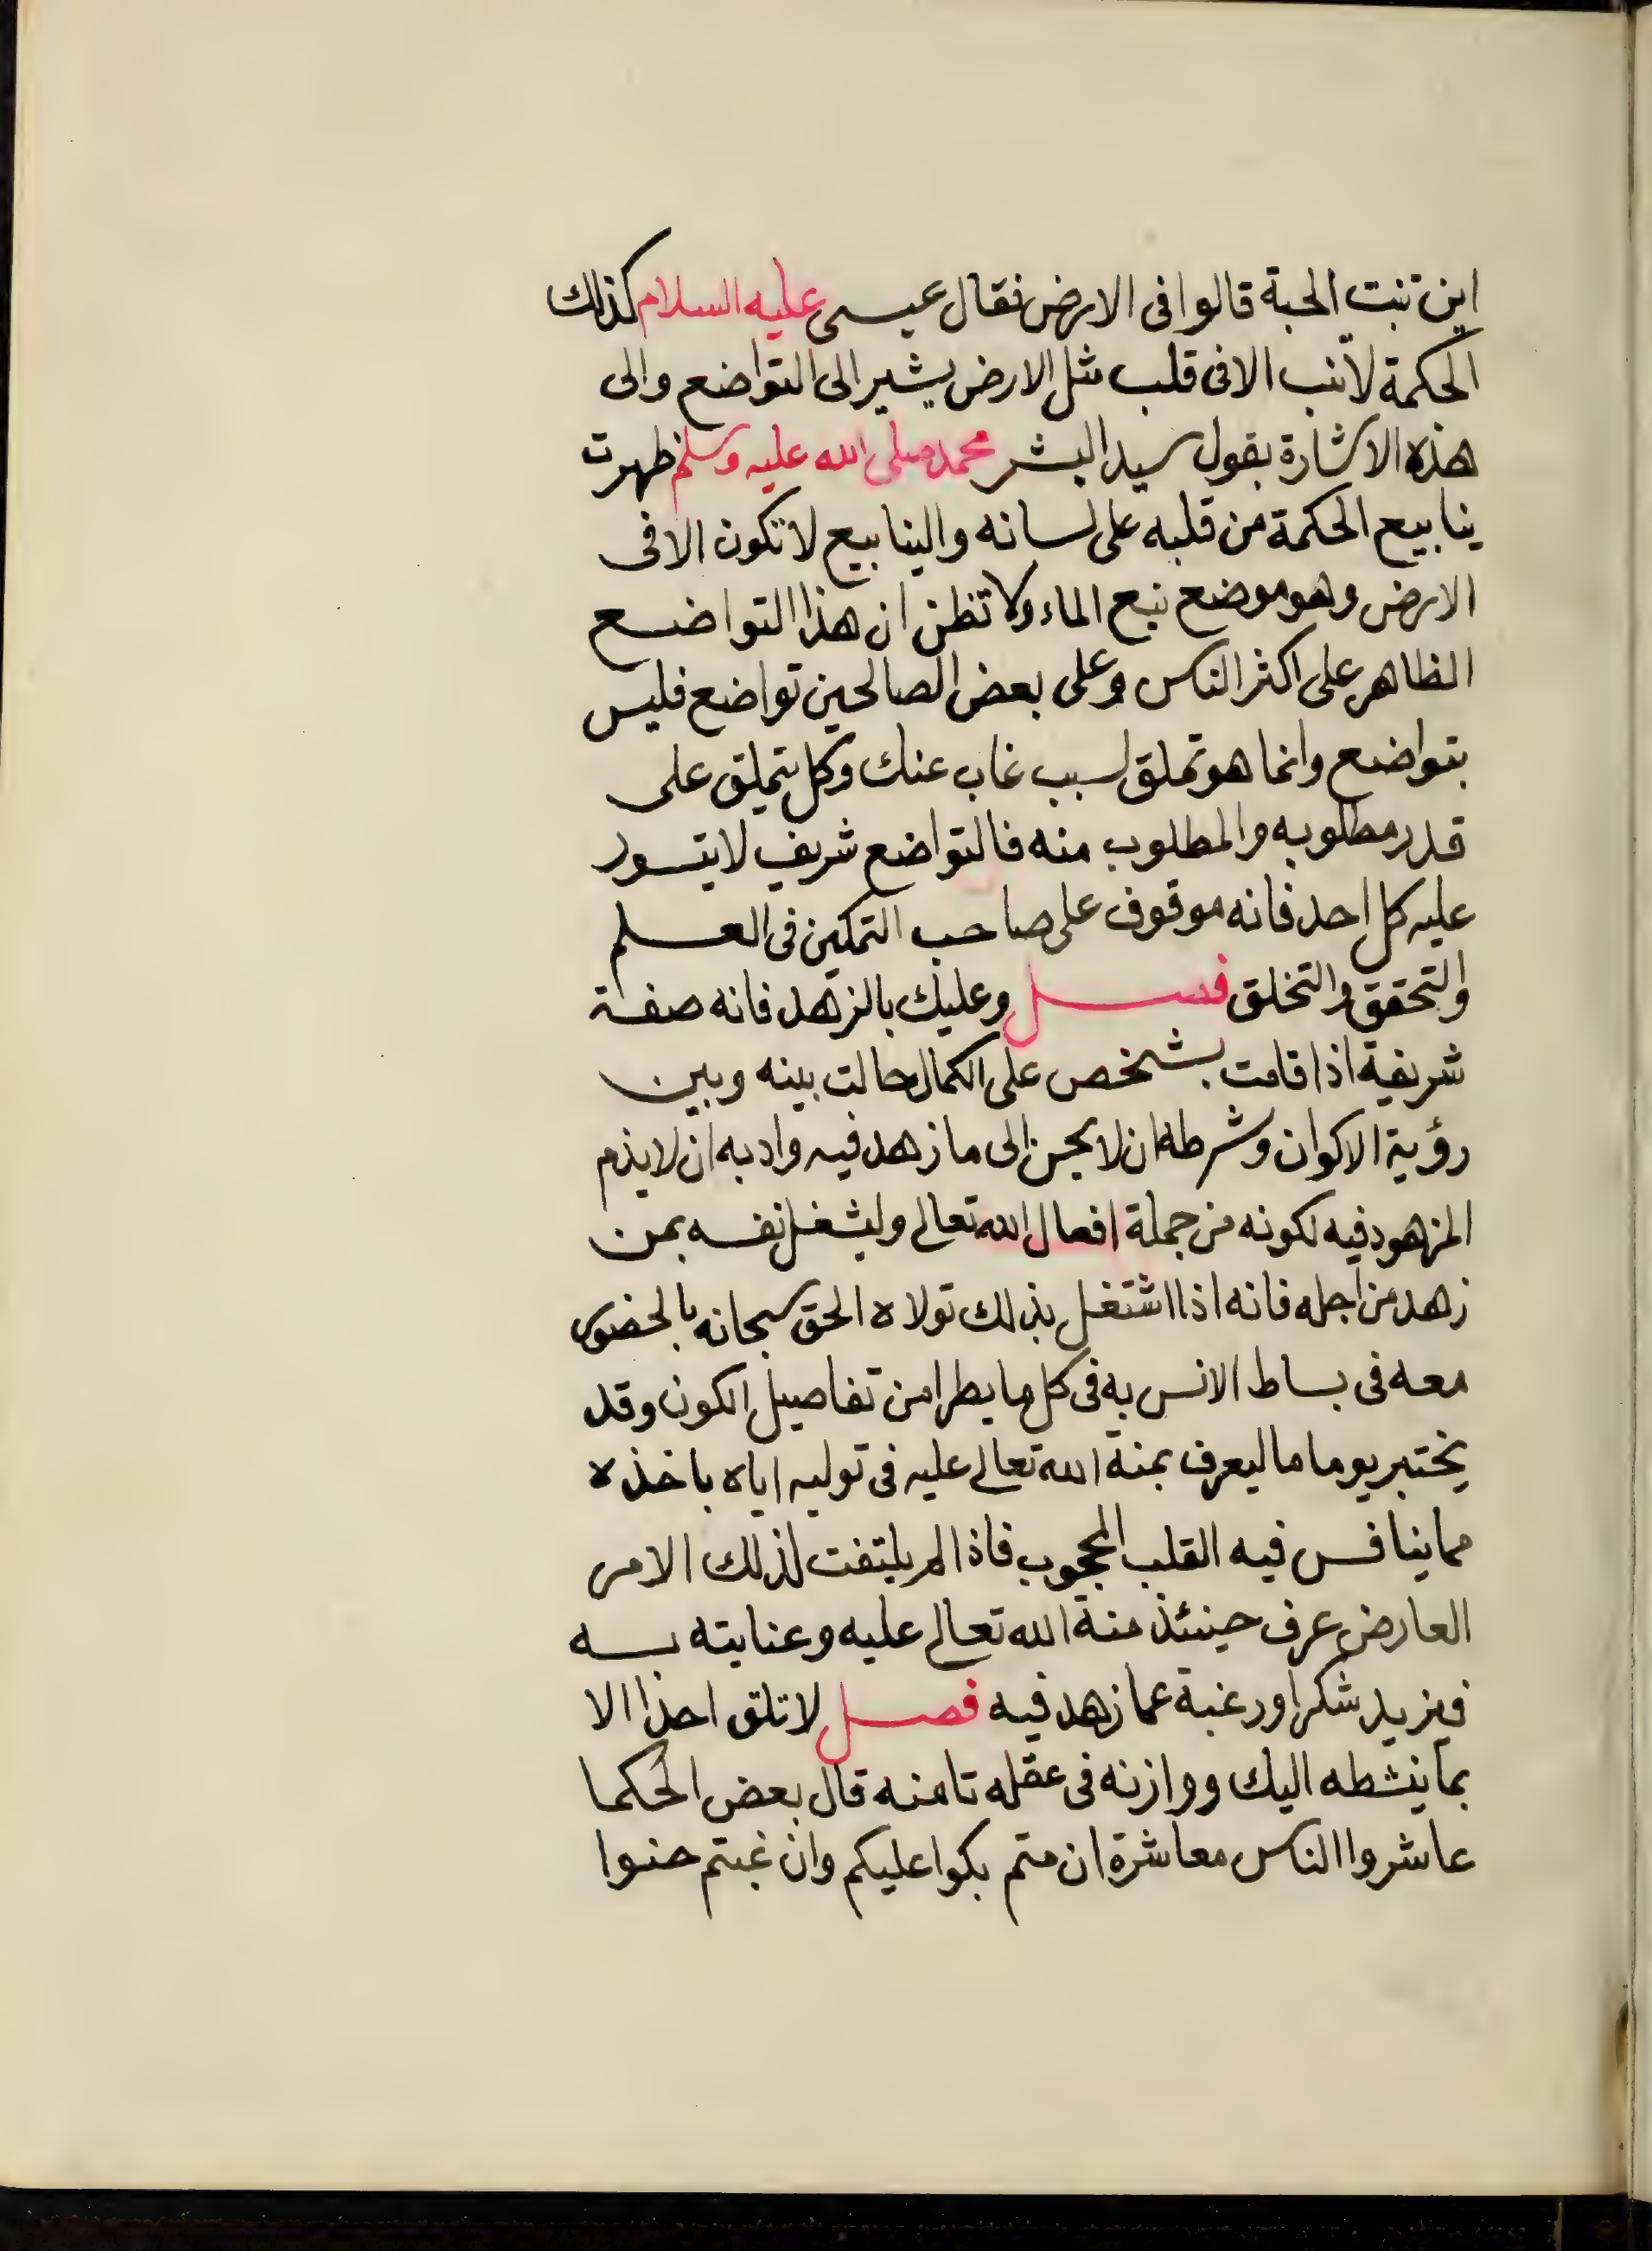 اين تنبت الحبة قالوا فى الارض فقال عيسى عليه السلام كذلك
الحكمة لا تنب الا فى قلب مثل الارض يشير الى التواضع والى
هذه الاشارة بقول سيد البشر محمد صلى الله عليه وسلم ظهرت
ينابيع الحكمة من قلبه على لسانه والينابيع لا تكون الا فى
الارض وهو موضع نبع الماء ولا تظن ان هذا التواضع
الظاهر على اكثر الناس وعلى بعض الصالحين تواضع فليس
بتواضع وانما هو تملق لسبب غاب عنك وكل يتملق على
قدر مطلوبه والمطلوب منه فالتواضع شريف لا يتسور
عليه كل احد فانه موقوف على صاحب التمكين فى العلم
والتحقق والتخلق فصل وعليك بالزهد فانه صفة
شريفة اذا قامت بشخص على الكمال حالت بينه وبين
رؤية الاكوان وشرطه ان لا يحن الى ما زهد فيه وادبه ان لا يذم
المزهود فيه لكونه من جملة افعال الله تعالى وليشغل نفسه بمن
زهد من اجله فانه اذا اشتغل بذلك تولاه الحق سبحانه بالحضور
معه فى بساط الانس به فى كل ما يطرا من تفاصيل الكون وقد
يختبر يوما ما ليعرف بمنة الله تعالى عليه فى توليه اياه باخذه
مما ينافس فيه القلب المحجوب فاذا لم يلتفت لذلك الامر
العارض عرف حينئذ منة الله تعالى عليه وعنايته به
فيزيد شكرا ورغبة عما زهد فيه فصل لا تلق احدا الا
بما ينشطه اليك ووازنه فى عقله تامنه قال بعض الحكما
عاشروا الناس معاشرة ان متم بكوا عليكم وان غبتم حنوا